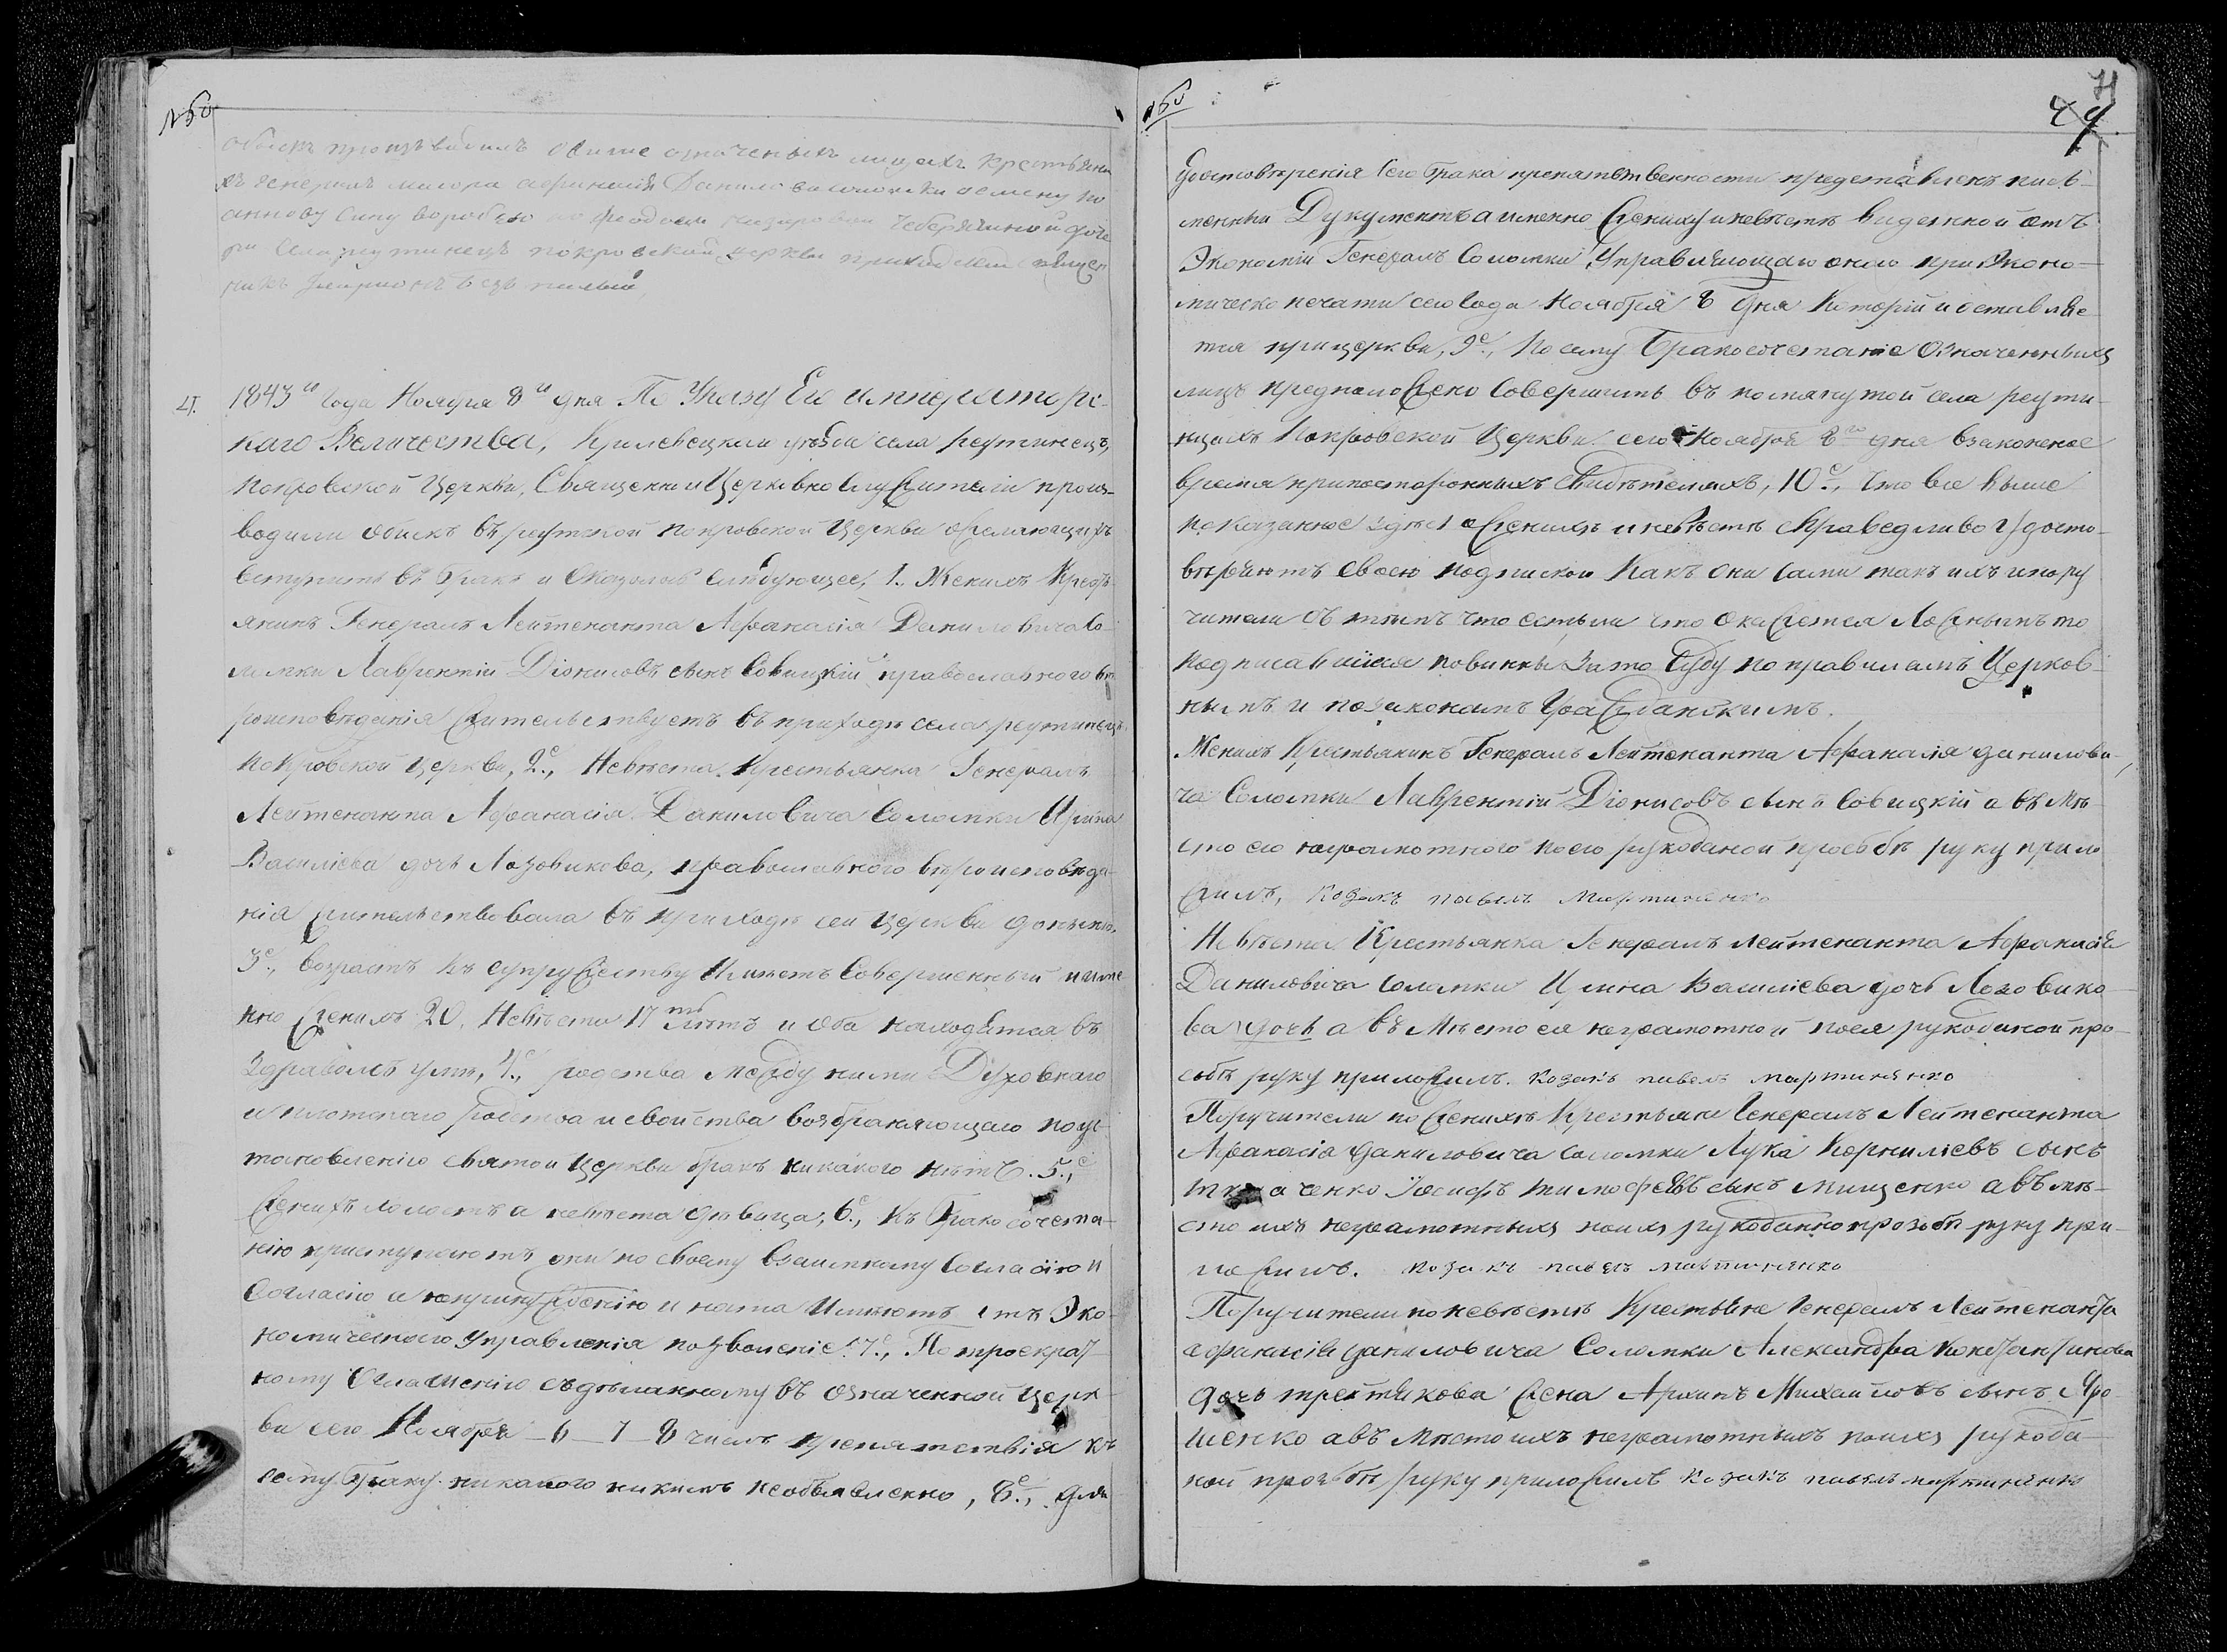 №50
обыскъ произъвидилъ о више означеныхъ лицахъ крестьянахъ
генералъ маиора афанасия Данило соломки семену ио
аннову сину воробъю по
села реутинецъ покровской церкви приход
никъ
21. 1843го года Ноября 8го дня По Указу Его императорс-
каго Величества, Кролевецкаго уѣзда села Реутинецъ,
Покровской Церкви, Священно и Церковно Служители произ-
водили обискъ въ реутской покровской церкви о желающихъ
вступить въ бракъ и Оказалось слѣдующее, 1. Женихъ Кресть-
янинъ Генералъ Лейтенанта Афанасія Даниловича Со-
ломки Лаврентій Діонисовъ сынъ Совицкій православного вѣ
роисповѣданія жительствуетъ въ приходѣ села реутинецъ
Покровской церкви, 2е., Невѣста Крестьянка Генералъ
Лейтенанта Афанасія Даниловича Соломки Ирина
Василіева дочь Лозовикова, православного вѣроисповѣда-
нія жительствовала въ приходѣ сей церкви донынѣ.
3е., возрастъ къ супружеству Имѣетъ Совершенный имѣ
нно женихъ 20, Невѣста 17ть лѣтъ и оба находятся въ
здравомъ умѣ, 4е., родства между ними Духовнаго
и плотскаго родства и свойства возбраняющаго по ус-
тановленію святой церкви бракъ никакого нѣтъ. 5е.,
женихъ холостъ а невѣста дѣвица, 6е., Къ Бракосочета-
нію приступаютъ они по своему взаимному Согласію и
Согласію и непринужденію и на то Имѣютъ отъ Эко-
номическаго Управленія позволеніе. 7е., По троекрат-
ному Оглашенію сдѣланному въ означенной церк-
ви сего Ноября 6 7 8 числъ препятствія къ
сему браку никакого никимъ необъявленно, 8е., для
№50
71
49
Удостовѣренія Сего брака препятственности представленъ пись-
менный Дукументъ а именно жениху и невѣстѣ виденной отъ
Экономіи Генералъ Соломки Управляющаго оною при эконо-
мической печати сего года Ноября 8 дня Которій и оставляе-
тся при церкви, 9е., По сему Бракосочетаніе Означеннихъ
лицъ предположено Совершить въ помянутой села реути-
нцахъ Покровской Церкви сего Ноября 8го дня взаконное
время при постороннихъ Свидѣтеляхъ, 10е., Что все више
показанное здѣсь о женихѣ и невѣстѣ справедливо Удосто-
вѣряютъ своею подпискою Какъ они сами такъ ихъ и пору
чители въ тѣмъ что естьли что окажется Ложнымъ то
подписавшіися повинны за то Суду по правиламъ Церков-
нымъ и по законамъ Гражданскимъ.
Женихъ Крестьянинъ Генералъ Лейтенанта Афанасія Данилови-
ча Соломки Лаврентій Діонисовъ сынъ Совицкій а въ мѣ-
сто его неграмотного по его рукоданой прозьбѣ руку прило
жилъ, козакъ павелъ Мартиненко
Невѣста Крестьянка Генералъ Лейтенанта Афанасія
Даниловича Соломки Ирина Василіева дочь Лозовико-
ва дочь а въ Мѣсто ея неграмотной поея рукоданой про-
сьбѣ руку приложилъ. козакъ павелъ мартиненко
Поручители по женихѣ Крестьяне Генералъ Лейтенанта
Афанасія Даниловича соломки Лука Корниліевъ сынъ
ткаченко Іосифъ тимофѣевъ сынъ мищенко а въ мѣ-
сто ихъ неграмотныхъ поихъ рукоданной прозьбѣ руку при-
ложилъ. козакъ павелъ мартиненко
Поручители по невѣстѣ Крестьяне Генералъ Лейтенанта
афанасія даниловича Соломки Александра Константинова
дочь третякова жена Архипъ Михаиловъ сынъ Яро-
шенко а въ Мѣсто ихъ неграмотныхъ поихъ рукода-
ной прозьбѣ руку приложилъ козакъ павелъ мартиненко